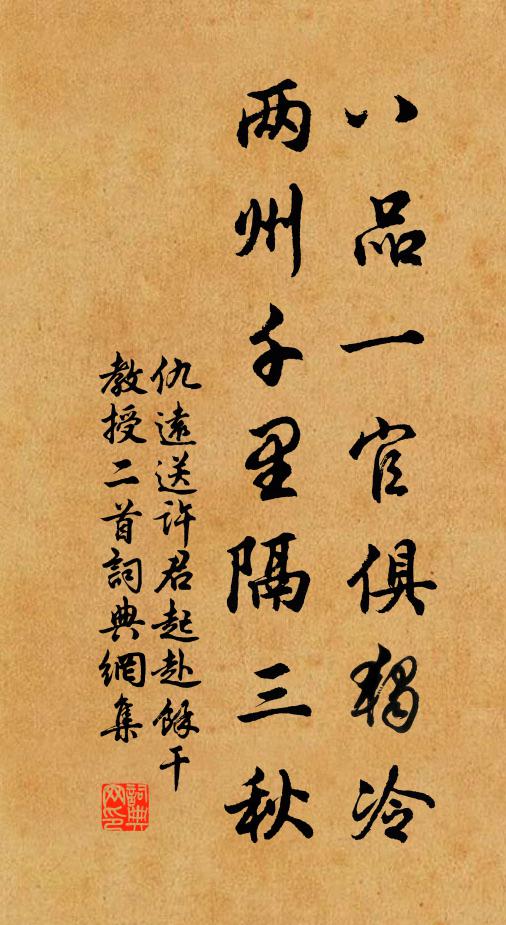 八品一官俱独冷
两州千里隔三秋
仇遠送许君起赴餘干
教授二首詞典網集
詞典网印